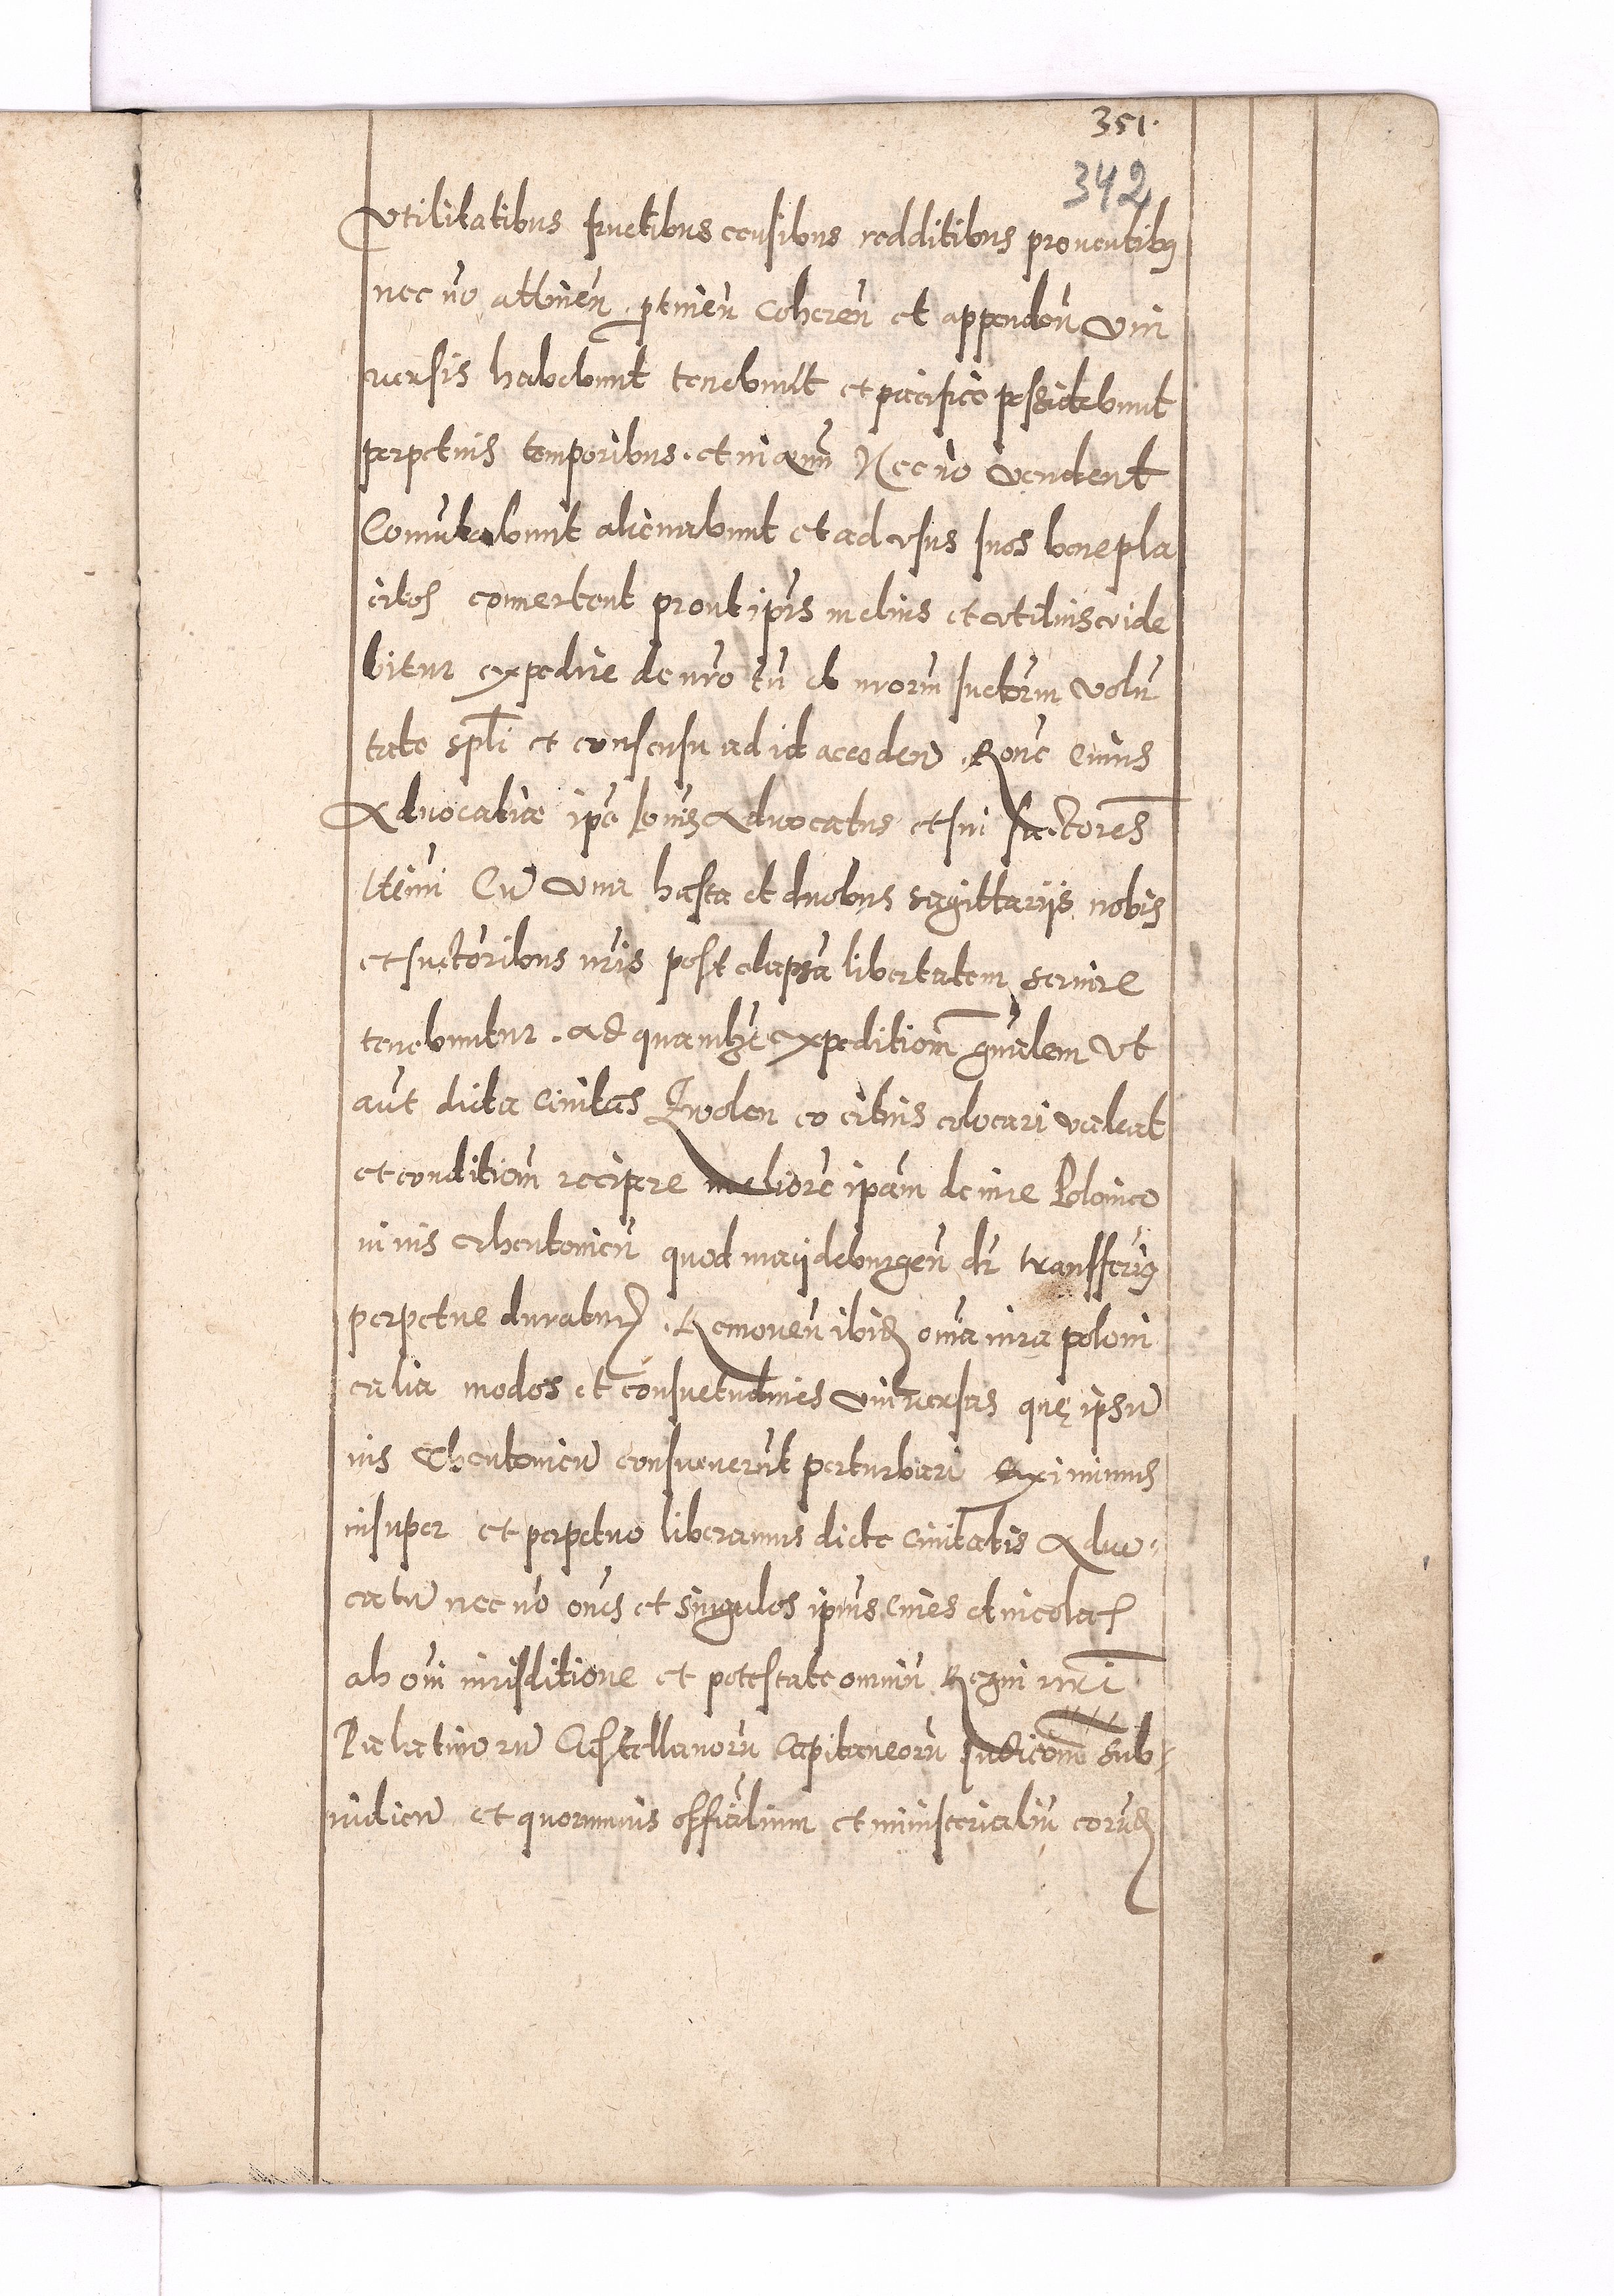 351.
342
Vtilitatibus fructibus censibus redditibus prouentibꝫ
nec no attinen̄ ꝑtinen̄ Coheren̄ et appenden̄ vni
uersis habebunt tenebunt et pacifice possidebunt
perpetuis temporibus . et in aeuū Nec no vendent
Comutabunt alienabunt et ad vsus suos benepla
citos conuertent prout ip̄is melius et vtilius vide
bitur expedire de nr̄o tn̄ et nrorum suctorum volū
tate sp̄li et consensu ad id acceden̄ . Ronē Cuius
Aduocatiae ip̄e Aduocatus et sui suctores
Itemi Cū vna hasta et duobus sagittarijs nobis
et suctoribus nr̄is post elapsā libertatem seruire
tenebuntur . ad quamlꝫ expeditiom̄ gn̄alem Vt
aūt dicta Ciuitas Zwolen eo citius colocari valeat
et conditiom̄ recipere meliorē ipām de iure Polonico
in ius Theutonicū quod maijdeburgen̄ dr̄ transferim9
perpetue duratur . Remouen̄ ibidē om̄a iura poloni
calia modos et consuetudines vniuersas quę ipsū
ius Theutonicū consueuerūt perturbari Eximimus
insuper et perpetuo liberamus dicte Ciuitatis Aduo-
catū nec no om̄es et singulos ipīus Ciues et incolas
ab om̄i iurisditione et potestate omniū Regni nr̄i
Palatinorū Castellanorū Capitaneorū Iudicom̄ Sub-
iudicū et quorumuis officialium et ministerialiū eorūdē